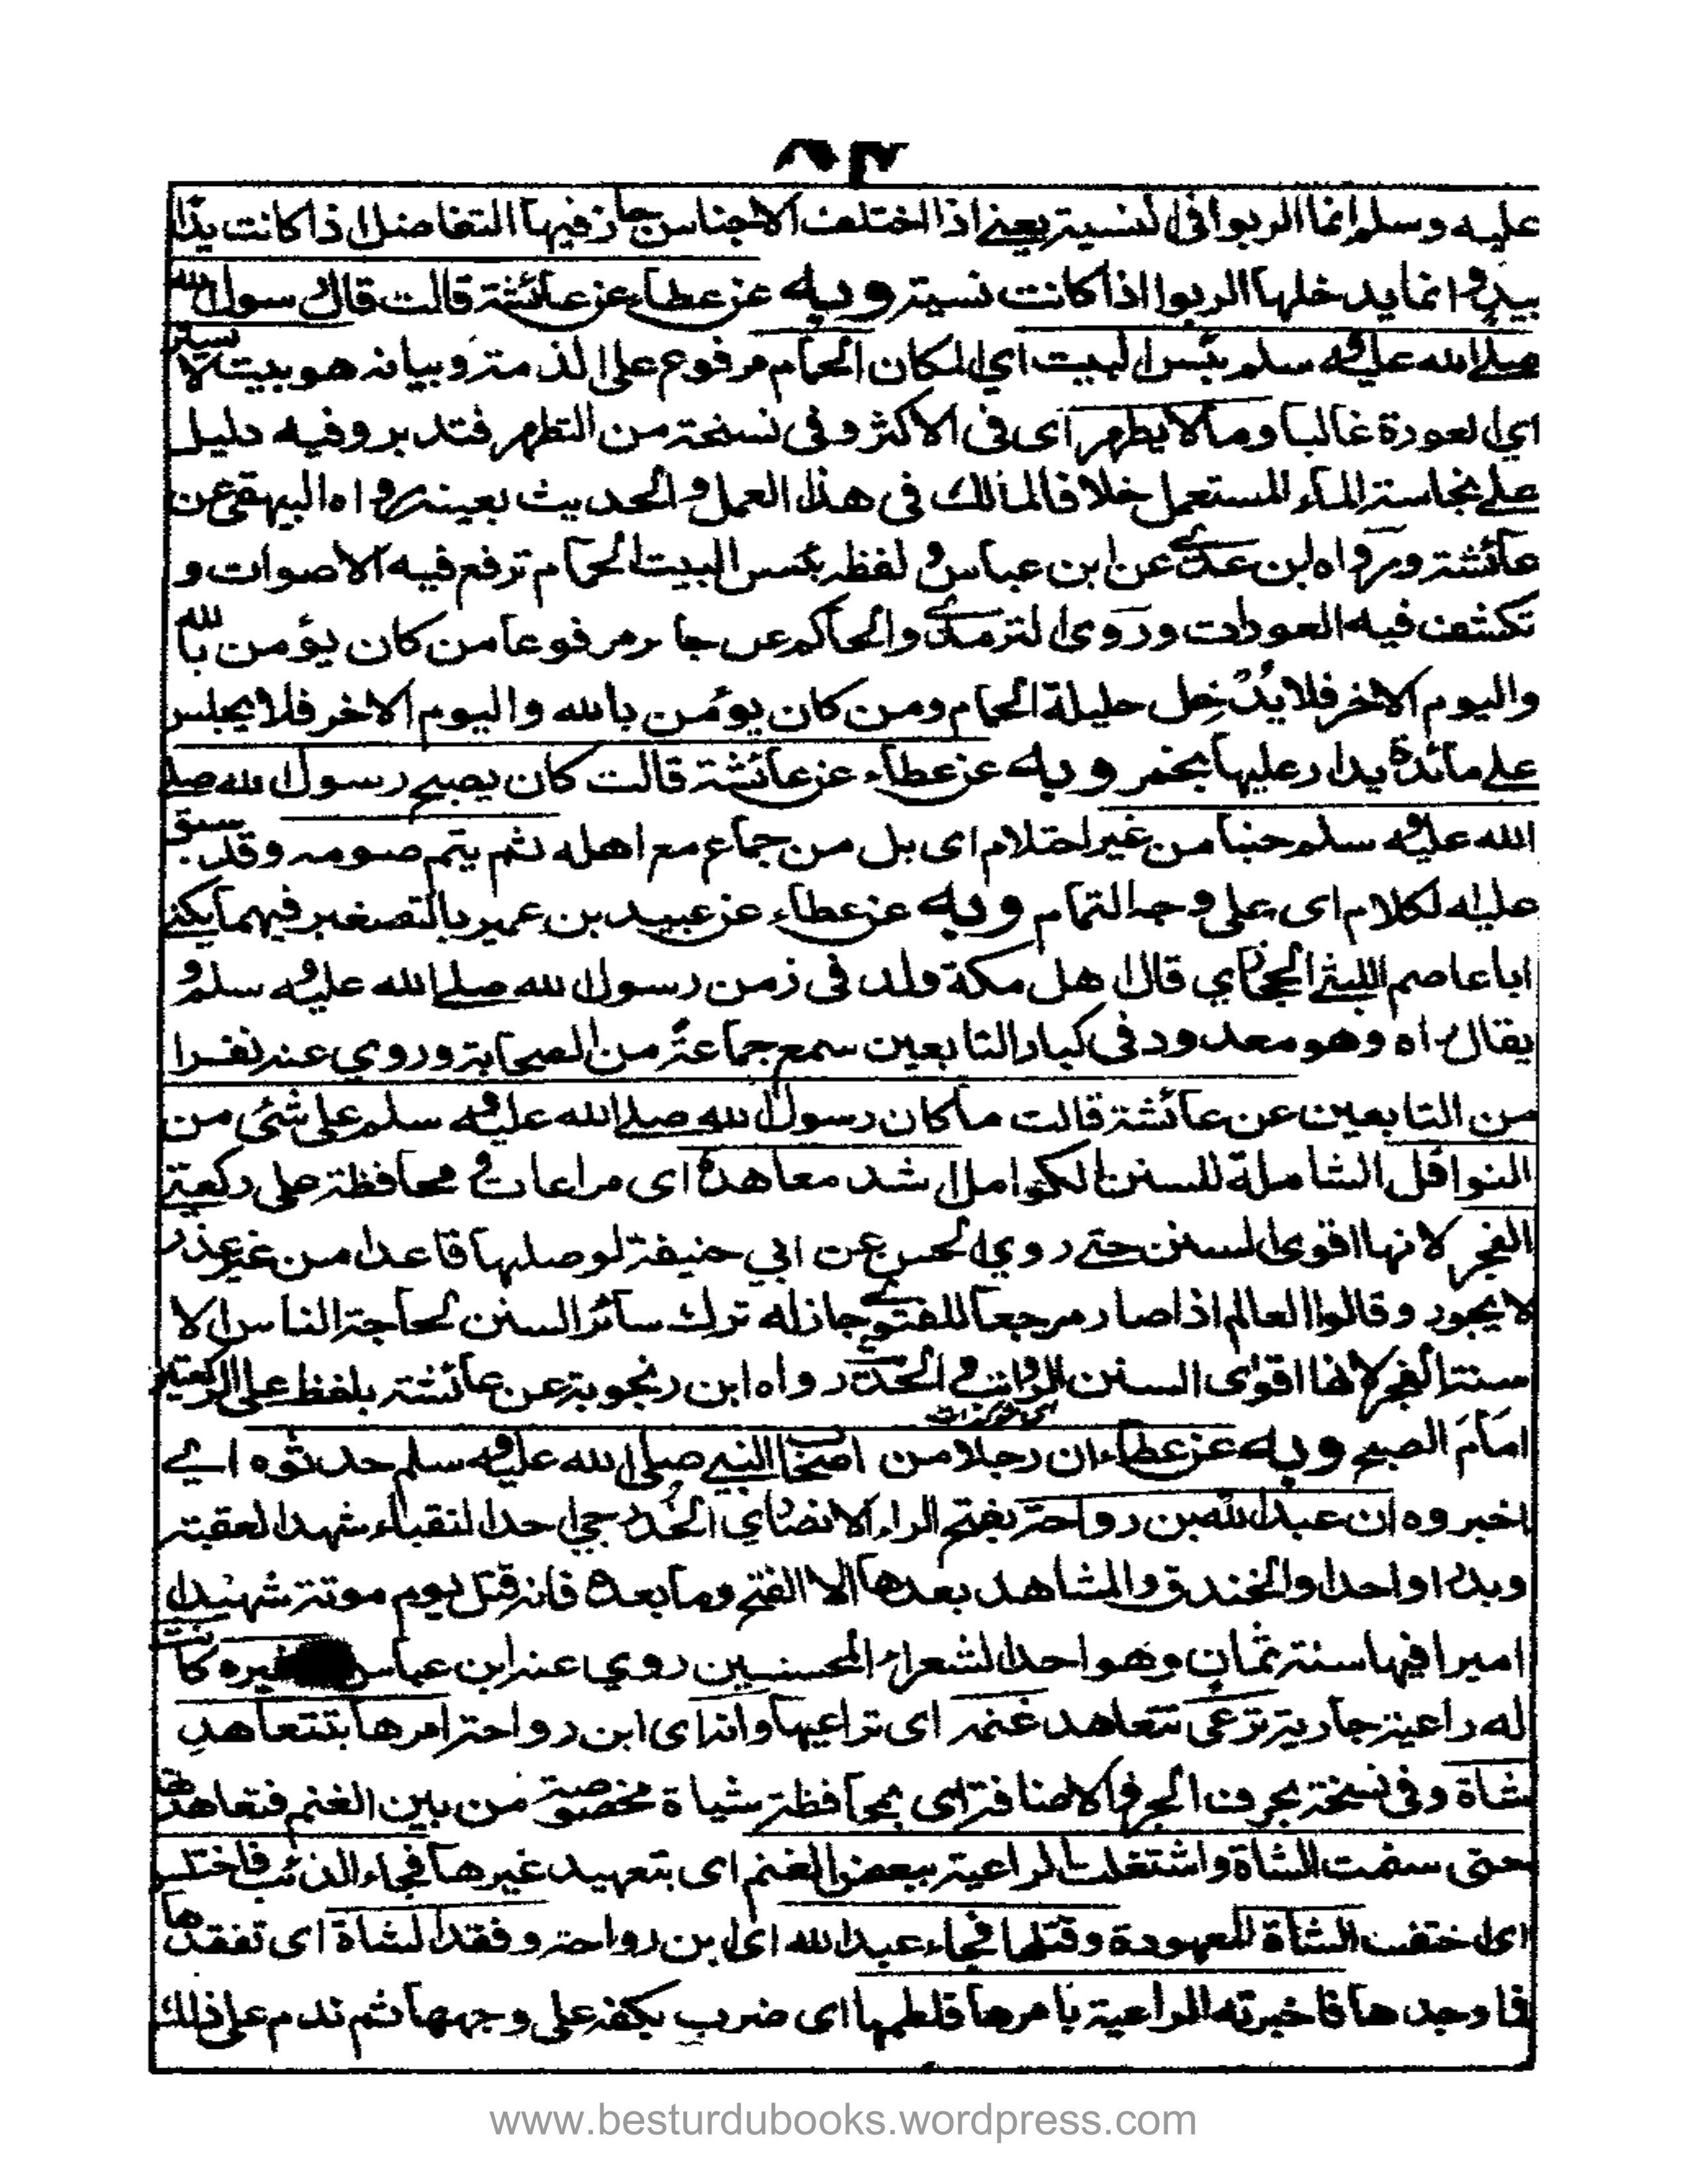 عليه وسلم انما الربوا فى النسيئة يعنے اذا اختلفت الاجناس جاز فيها التفاضل اذا كانت يدًا
بيدٍ و انما يدخلها الربوا اذا كانت نسيئة وبه عن عطاء عن عائشة قالت قال رسول الله
صلے الله عليه و سلم بئس البيت اى المكان الحمام مرفوع على الذمة وبيانه هو بيت لا يستر
اى العورة غالبا وماء لا يطهر اى فى الاكثر وفى نسخة من التطهر فتدبر وفيه دليل
علے نجاسة الماء المستعمل خلافا لمالك فى هذا العمل و الحديث بعينه رواه البيهقى عن
عائشة ورواه ابن عدے عن ابن عباس و لفظه بئس البيت الحمام ترفع فيه الاصوات و
تكشف فيه العورات وروى الترمذے والحاكم عن جابر مرفوعا من كان يؤمن بالله
واليوم الاخر فلا يدخل حليلة الحمام ومن كان يؤمن بالله واليوم الاخر فلا يجلس
على مائدة يدار عليها بخمر وبه عن عطاء عن عائشة قالت كان يصبح رسول الله صلے
الله عليه و سلم جنبا من غير احتلام اى بل من جماع مع اهله ثم يتم صومه وقد سبق
عليه الكلام اى على وجه التمام وبه عن عطاء عن عبيد بن عمير بالتصغير فيهما يكنے
ابا عاصم الليثى الحجازي قال اهل مكة ولد فى زمن رسول الله صلے الله عليه و سلم و
يقال راه وهو معدود فى كبار التابعين سمع جماعة من الصحابة وروي عنه نفرا
من التابعين عن عائشة قالت ما كان رسول الله صلے الله عليه و سلم على شئى من
النوافل الشاملة للسنن الكوامل اشد معاهدة اى مراعات و محافظة على ركعتے
الفجر لانها اقوى السنن حتے روي الحسن عن ابي حنيفة لو صلها قاعدا من غير عذر
لا يجوز وقالوا العالم اذا صار مرجعا للفتوے جاز له ترك سائر السنن لحاجة الناس الا
سنة الفجر لانها اقوى السنن الرواتب و الحديث رواه ابن زنجوية عن عائشة بلفظ على الركعتين
امام الصبح وبه عن عطاء ان رجلا من اصحاب النبي صلى الله عليه و سلم حدثوه اے
اخبروه ان عبد الله بن رواحة بفتح الراء الانصاري الخزرجى احد النقباء شهد العقبة
وبدرا واحدا والخندق والمشاهد بعدها الا الفتح وما بعده فانه قتل يوم موتة شهيدا
اميرا فيها سنة ثمان وهو احد الشعراء المحسنين روي عنه ابن عباس وغيره كانت
له راعية جارية ترعى تتعاهد غنمه اى تراعيها وانه اى ابن رواحة امرها بتتعاهد
شاة وفى نسخة بحرف الجر والاضافة اى بمحافظة شياة مخصوصة من بين الغنم فتعاهدها
حتى سمنت الشاة واشتغلت الراعية ببعض الغنم اى بتعهيد غيرها فجاء الذئب فاختلس
اى اختفت الشاة المعهودة وقتلها فجاء عبد الله اى ابن رواحة وفقد الشاة اى تفقدها
فا وجدها فاخبرته الراعية بامرها فلطمها اى ضرب بكفه على وجهها ثم ندم على ذلك
www.besturdubooks.wordpress.com